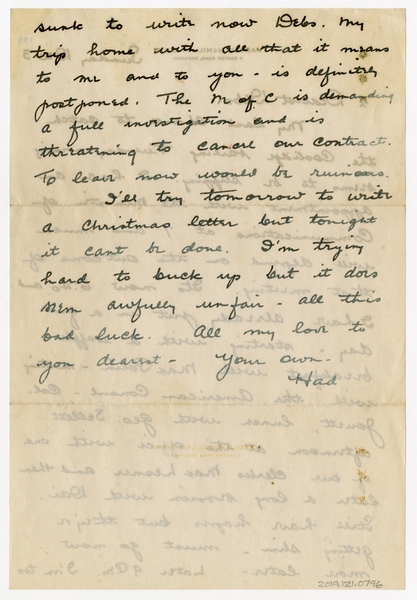 sunk to write now Debs. My
trip home with all that it means
to me and to you - is definitely
postponed. The M of C is demanding
a full investigation and is
threatening to cancel our contract.
To leave now would be ruinous.
I'll try tomorrow to write
a Christmas letter but tonight
it cant be done. I'm trying
hard to buck up but it does
seem awfully unfair - all this
bad luck. All my love to
you dearest - Your own.
Had
2019.121.0796